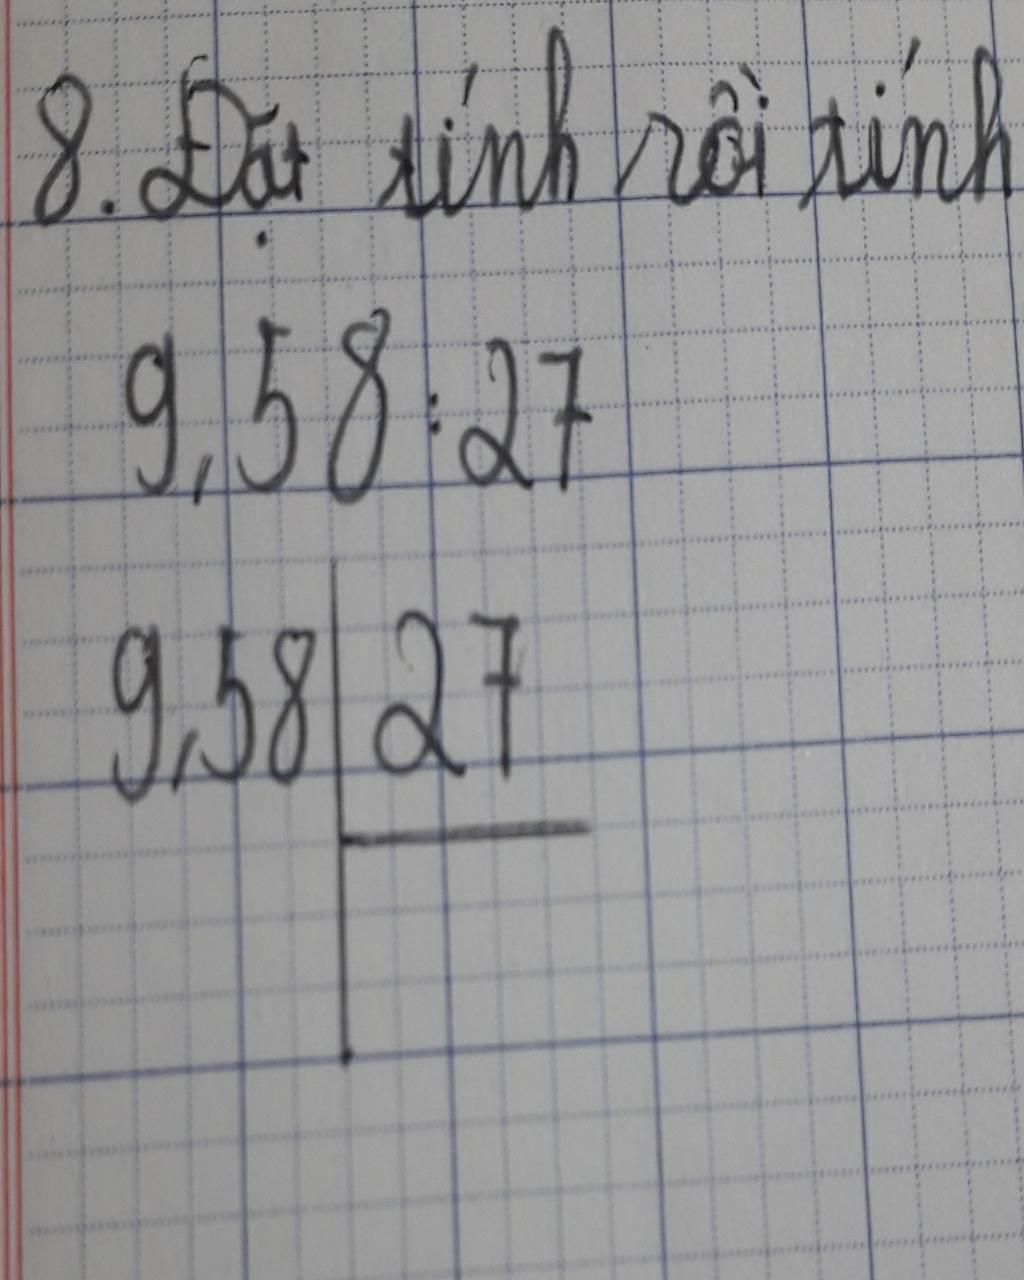 8. Đặt tính rồi tính
9,58:27
9,58 27